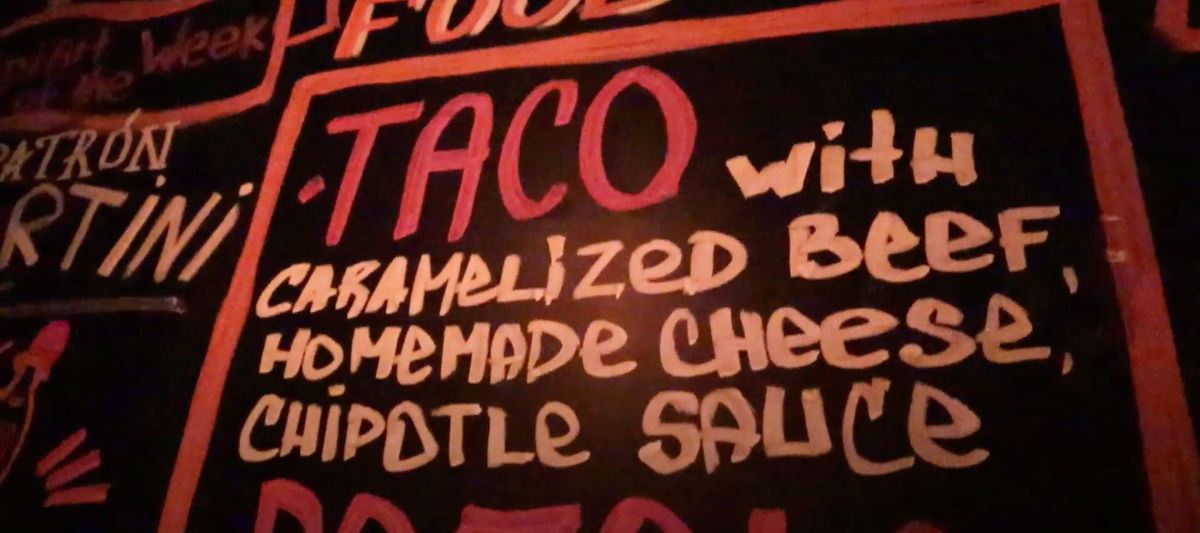 Week
of the
FOOD
PATRÓN
RTINI
·TACO with
CARAMELIZED BEEF,
HOMEMADE CHEESE,
CHIPOTLE SAUCE